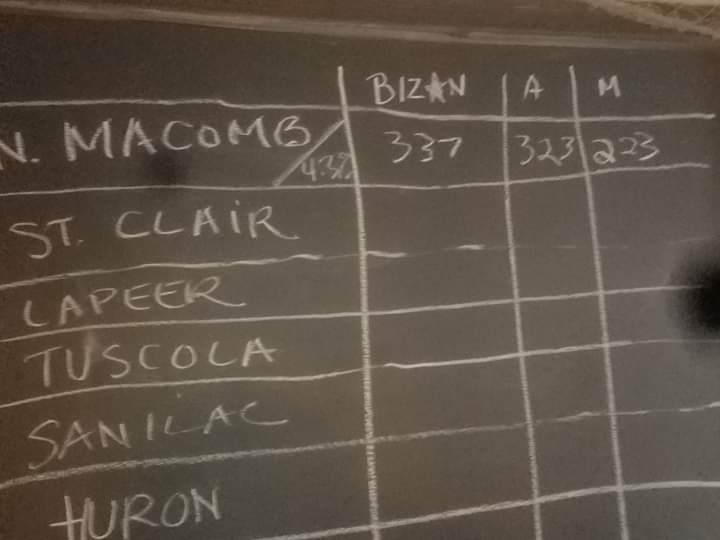 BIZAN A M
N. MACOMB 4.3% 337 323 223
ST. CLAIR
LAPEER
TUSCOLA
SANILAC
HURON